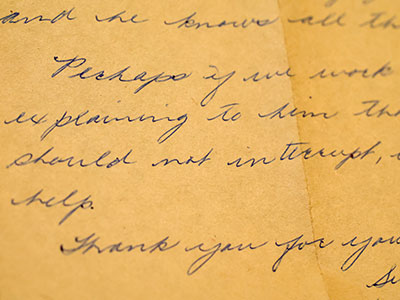 and he knows all th
Perhaps if we work
explaining to him tha
should not interrupt,
help.
Thank you for you